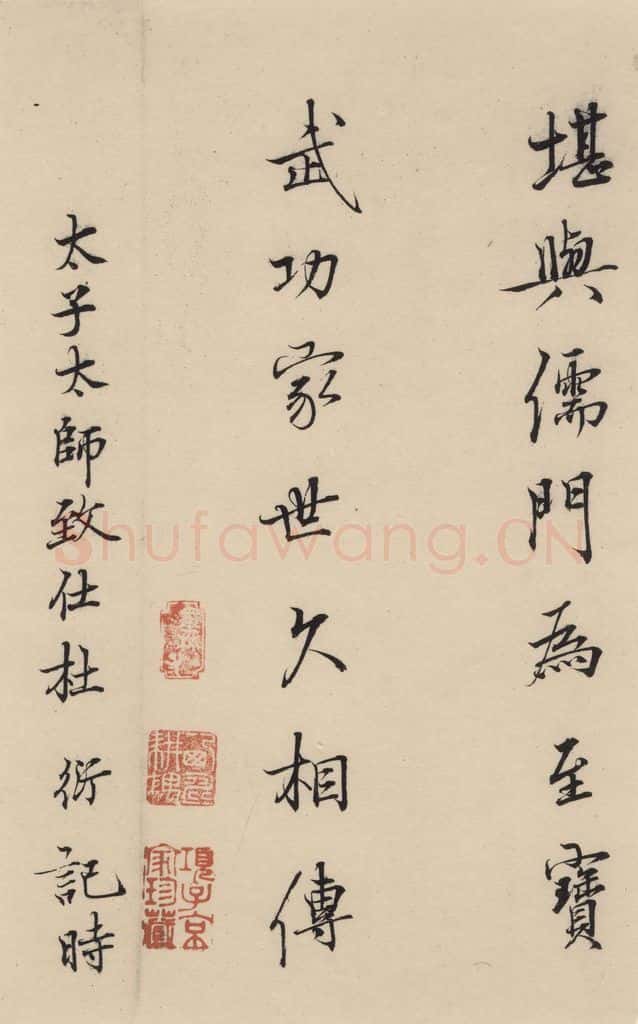 堪與儒門為至寶
武功家世久相傳
太子太師致仕杜衍記時
項子京家珍藏
shufawang.CN